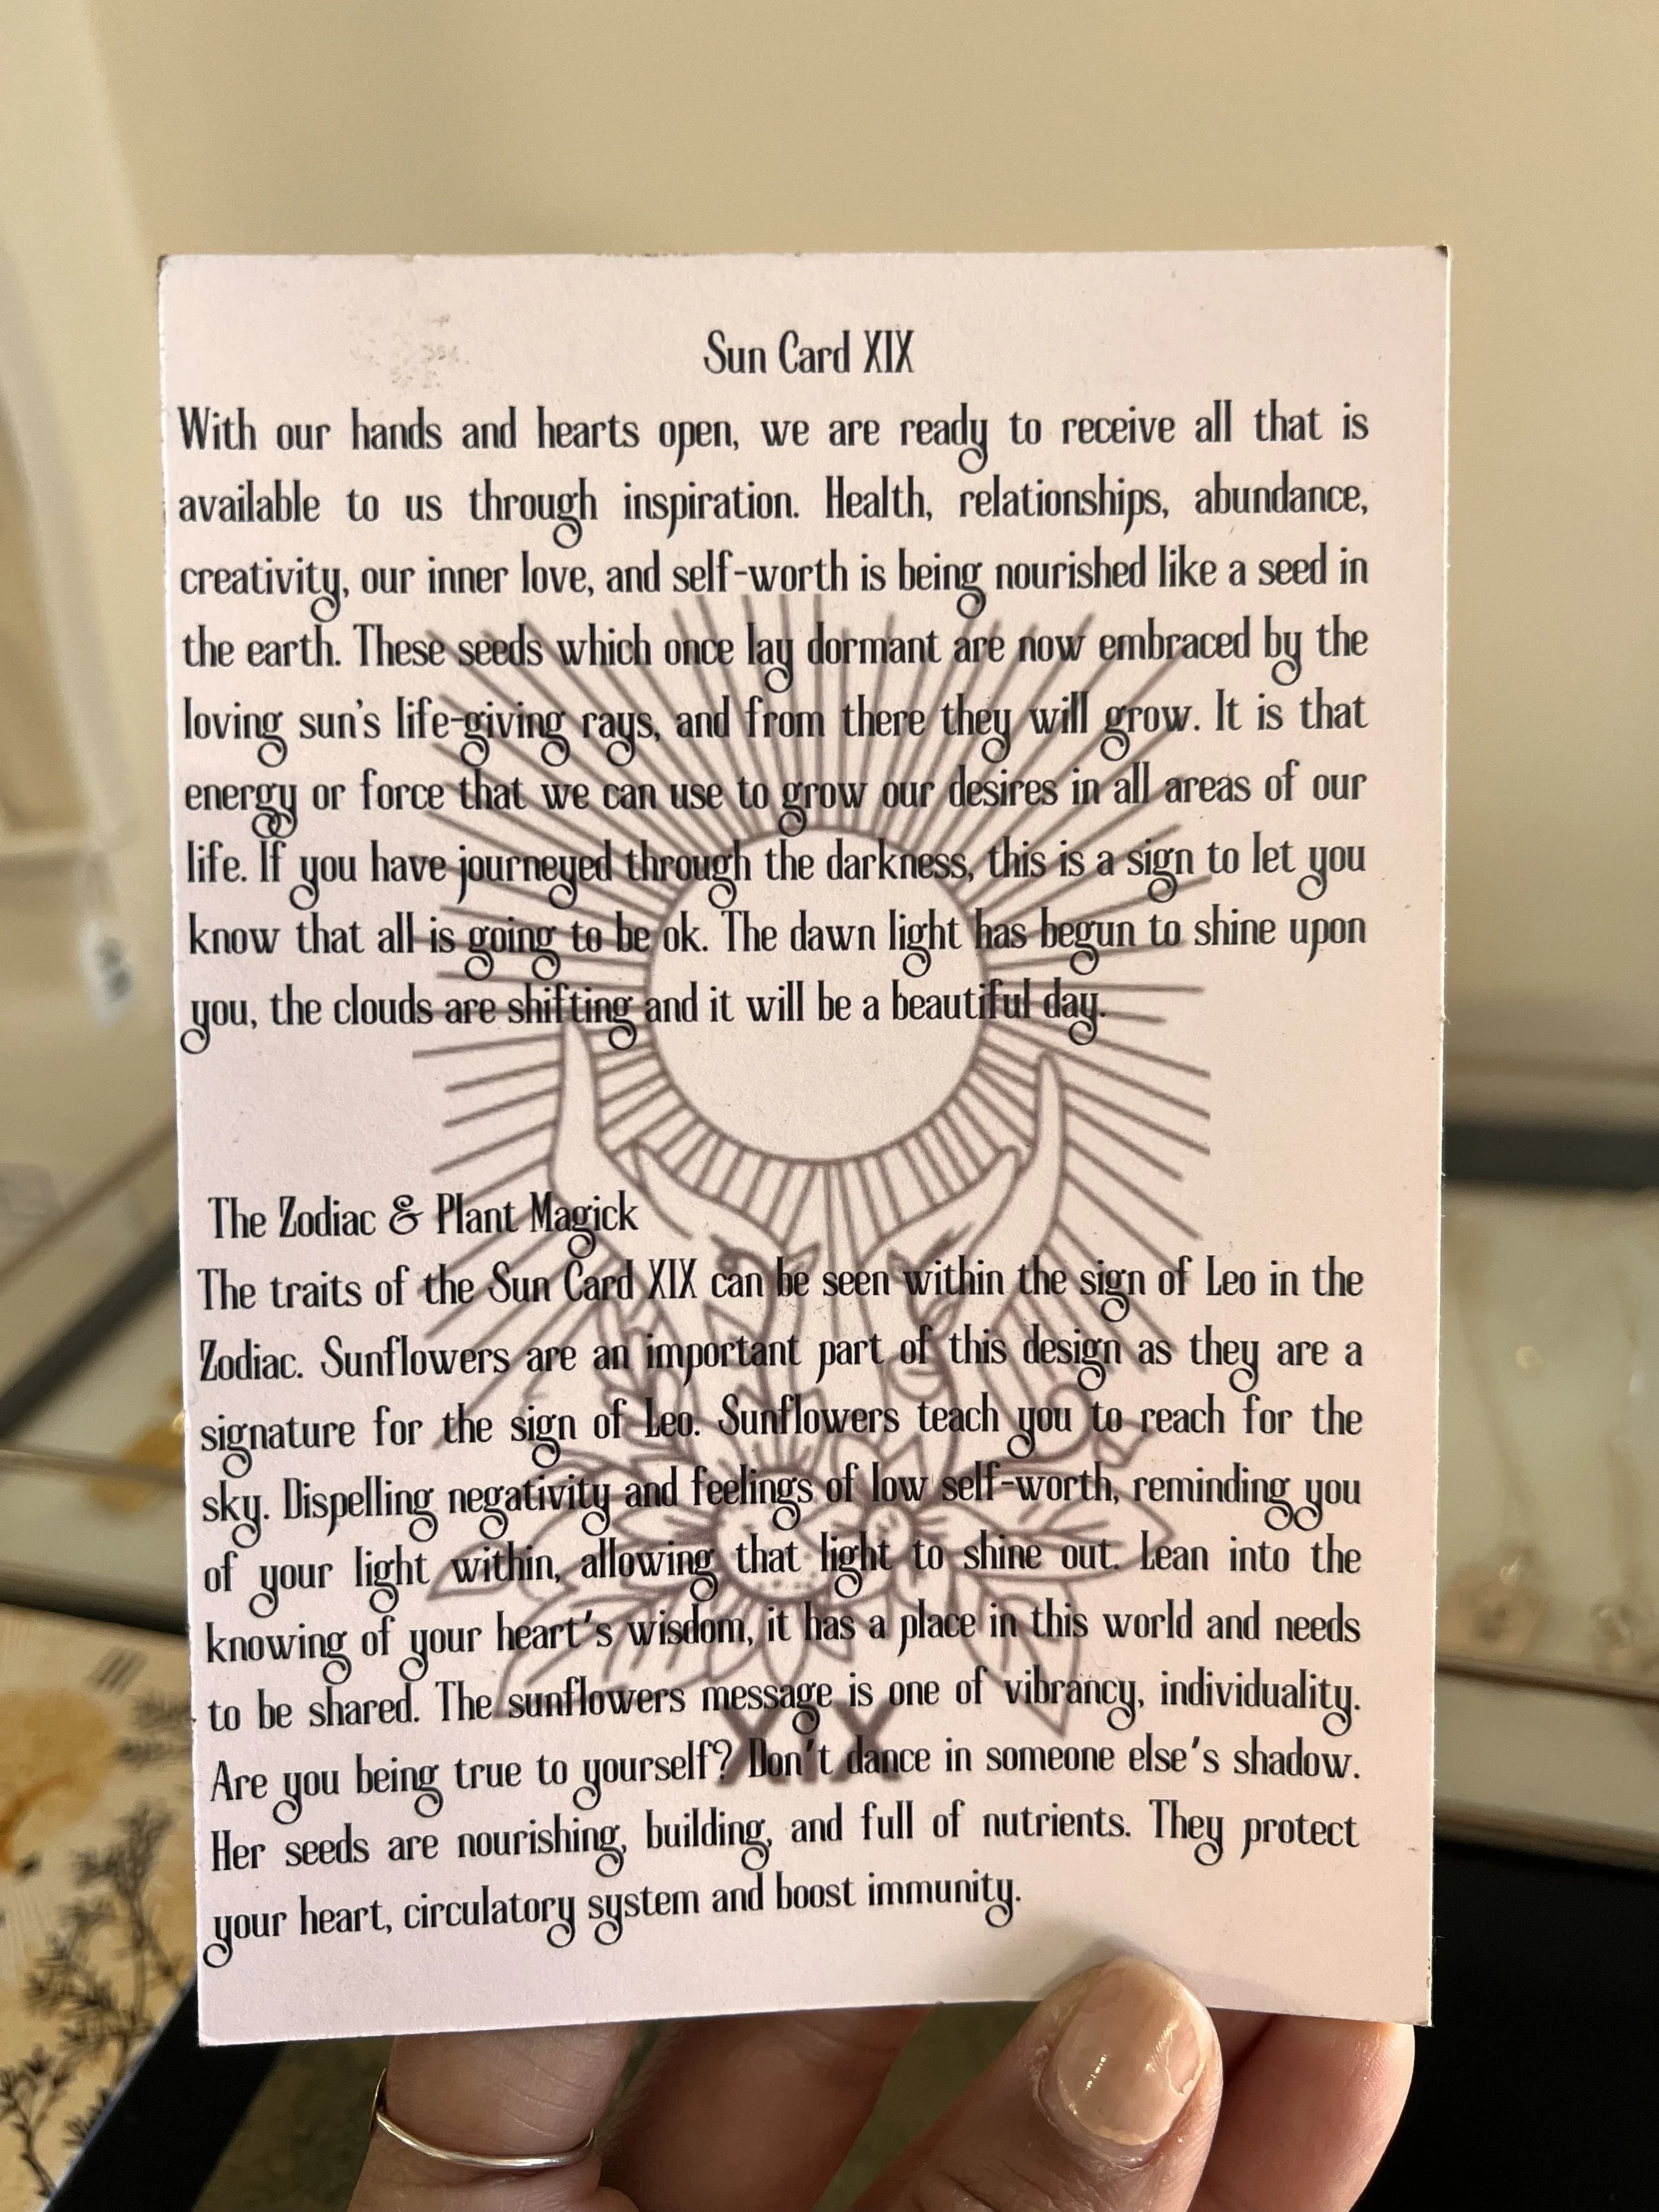 Sun Card XIX
With our hands and hearts open, we are ready to receive all that is
available to us through inspiration. Health, relationships, abundance,
creativity, our inner love, and self-worth is being nourished like a seed in
the earth. These seeds which once lay dormant are now embraced by the
loving sun's life-giving rays, and from there they will grow. It is that
energy or force that we can use to grow our desires in all areas of our
life. If you have journeyed through the darkness, this is a sign to let you
know that all is going to be ok. The dawn light has begun to shine upon
you, the clouds are shifting and it will be a beautiful day.
The Zodiac & Plant Magick
The traits of the Sun Card XIX can be seen within the sign of Leo in the
Zodiac. Sunflowers are an important part of this design as they are a
signature for the sign of Leo. Sunflowers teach you to reach for the
sky. Dispelling negativity and feelings of low self-worth, reminding you
of your light within, allowing that light to shine out. Lean into the
knowing of your heart's wisdom, it has a place in this world and needs
to be shared. The sunflowers message is one of vibrancy, individuality.
XIX
Are you being true to yourself? Don't dance in someone else's shadow.
Her seeds are nourishing, building, and full of nutrients. They protect
your heart, circulatory system and boost immunity.